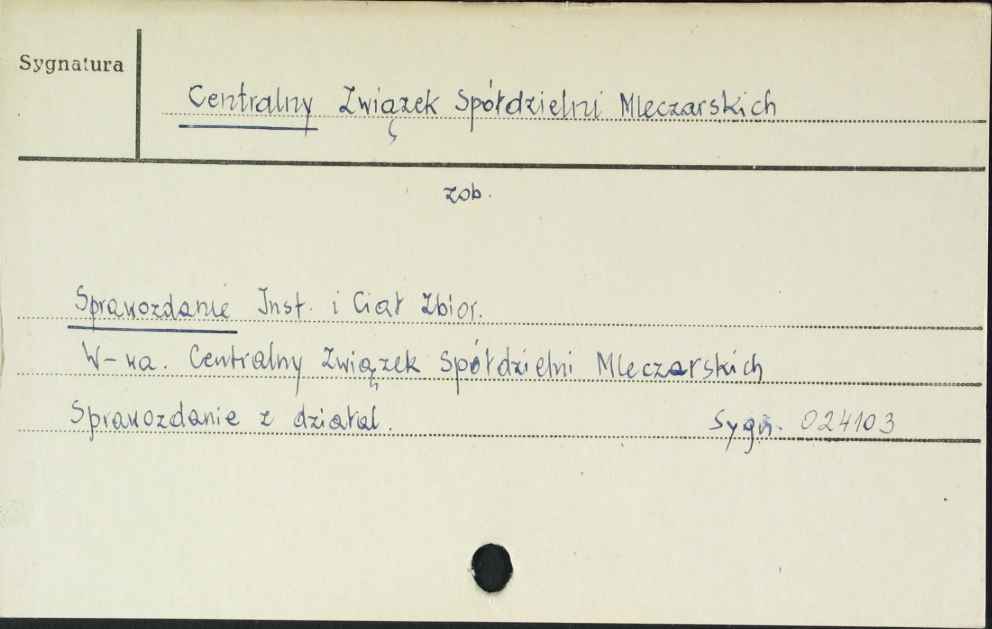 Sygnatura
Centralny Związek Spółdzielni Mleczarskich
zob.
Sprawozdanie Inst. i Ciał Zbior.
W-wa. Centralny Związek Spółdzielni Mleczarskich
Sprawozdanie z działal. Sygn. 024103